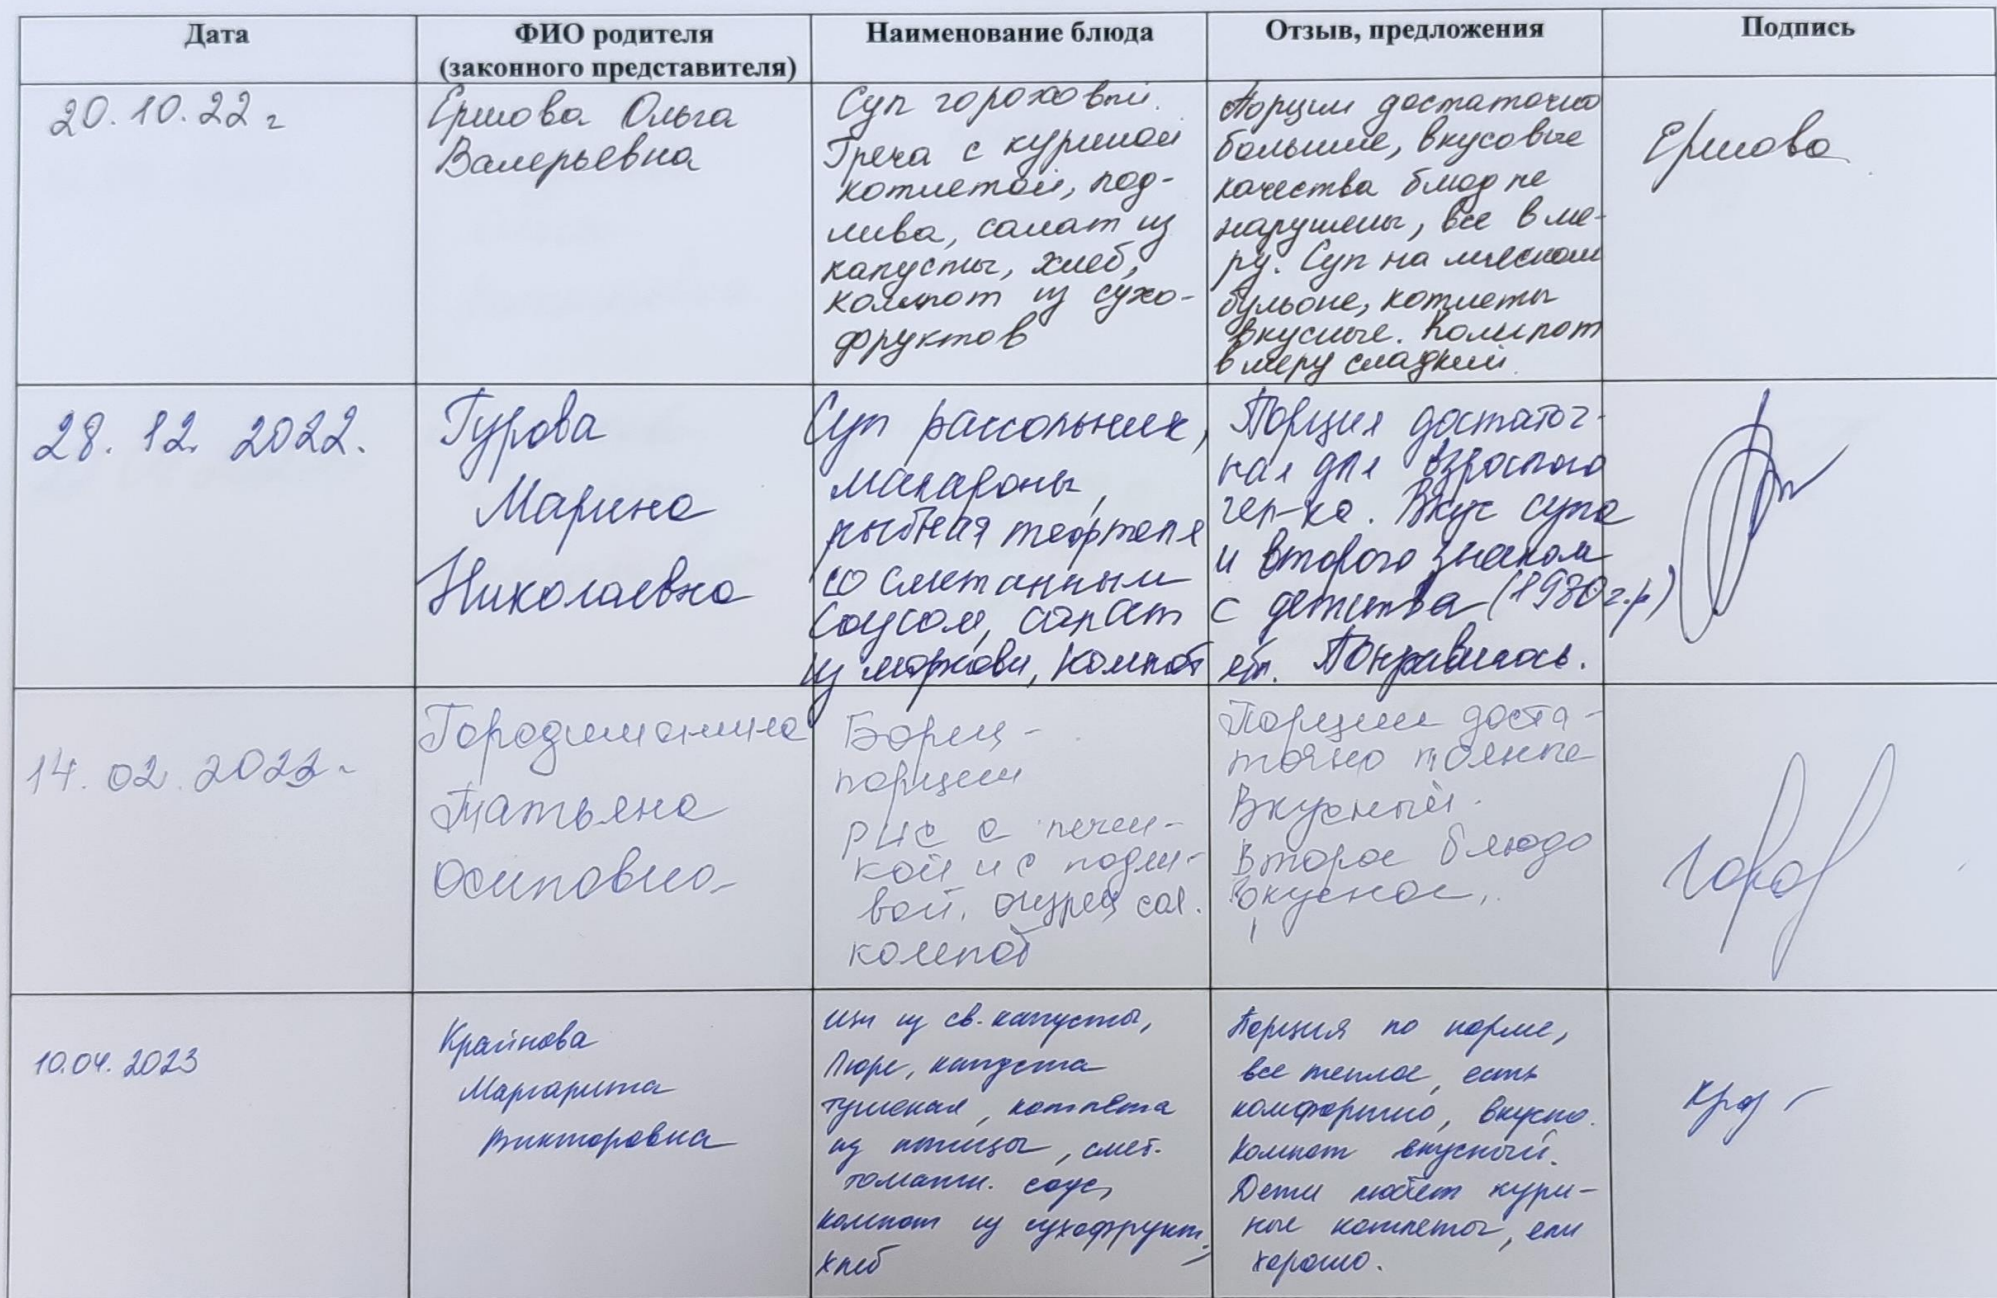 Дата
ФИО родителя
(законного представителя)
Наименование блюда
Отзыв, предложения
Подпись
20.10.22 г
Ершова Ольга
Валерьевна
Суп гороховый.
Греча с куриной
котлетой, под-
лива, салат из
капусты, хлеб,
компот из сухо-
фруктов
Порции достаточно
большие, вкусовые
качества блюд не
нарушены, все в ме-
ру. Суп на мясном
бульоне, котлеты
вкусные. Компот
в меру сладкий.
Ершова
28.12.2022.
Гурова
Марина
Николаевна
Суп рассольник,
макароны,
рыбная тефтеля
со сметанным
соусом, салат
из моркови, компот
Порция достаточ-
ная для взрослого
чел-ка. Вкус супа
и второго знаком
с детства (1980 г.р)
Понравилось.
14.02.2023
Татьяна
Осиповна
Борщ -
порции
рис с печен-
кой и с подли-
вой, огурец сол.
компот
Порции доста-
точно полные
Вкусный.
Второе блюдо
вкусное.
10.04.2023
Крайнова
Маргарита
Викторовна
щи из св. капусты,
Пюре, капуста
тушеная, котлета
из птицы, смет.
томатн. соус,
компот из сухофрукт,
хлеб
Порция по норме,
все теплое, есть
комфортно, вкусно.
Компот вкусный.
Дети любят кури-
ные котлеты, ели
хорошо.